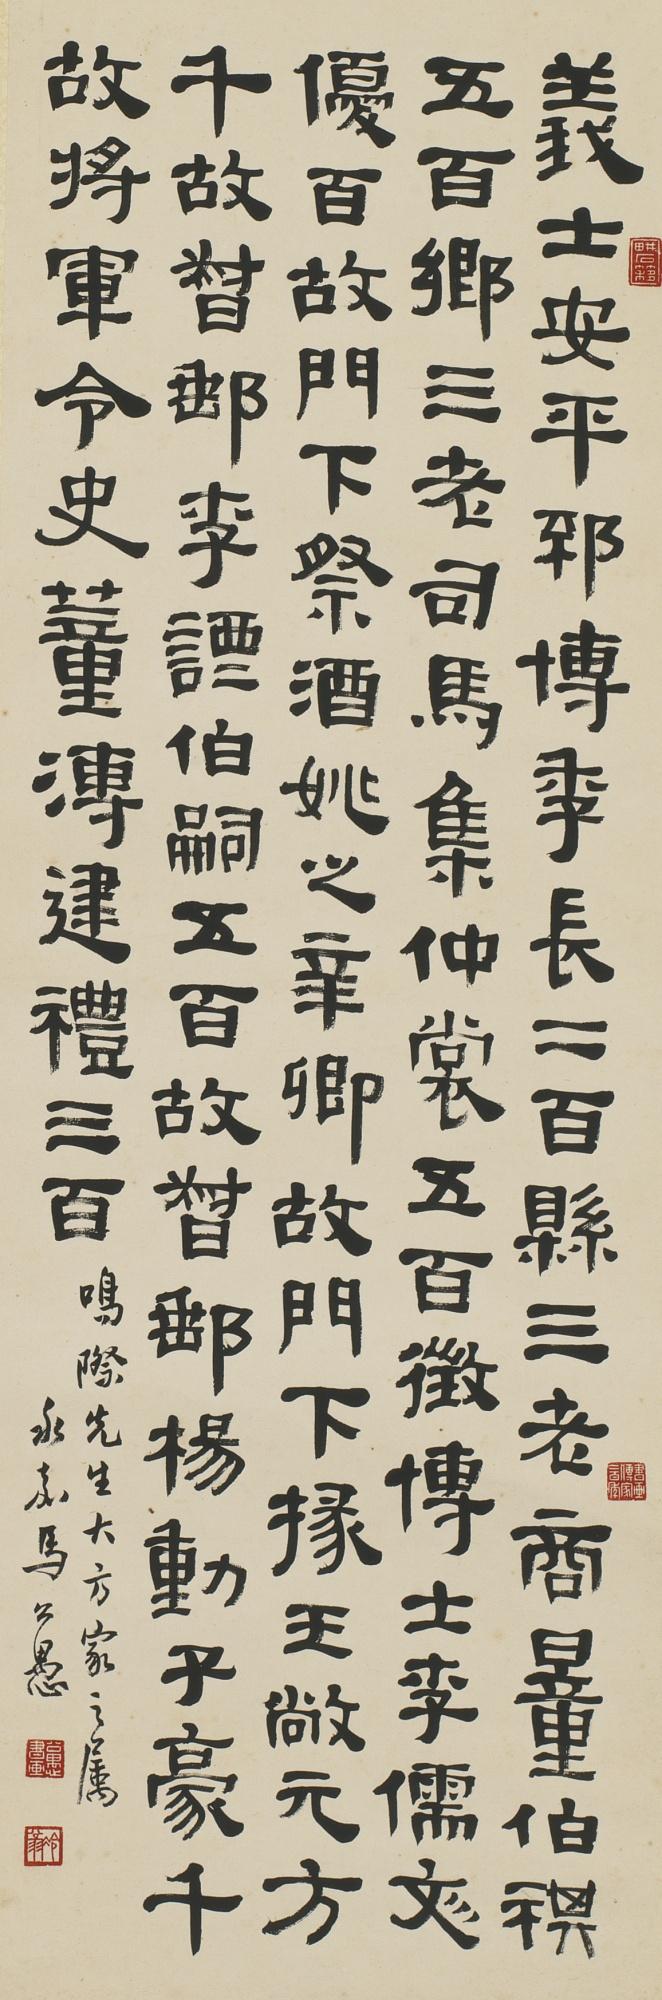 義士安平祁博季長二百縣三老商量伯祺
五百鄉三老司馬集仲裳五百徵博士李儒文
優百故門下祭酒姚之辛卿故門下掾王敞元方
千故督郵李諲伯嗣五百故督郵楊動子豪千
故將軍令史董溥建禮三百
鳴際先生大方家之属
永嘉馬公愚